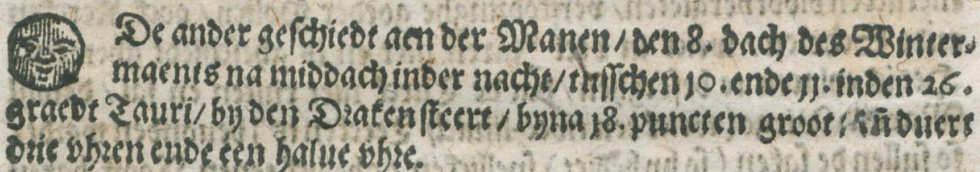 De ander geschiedt aen der Manen / den 8. dach des Winter-
maents na middach inder nacht / tusschen 10. ende 11. inden 26.
graedt Tauri / by den Draken steert / byna 18. puncten groot / eñ duert
drie vhren ende een halue vhre.